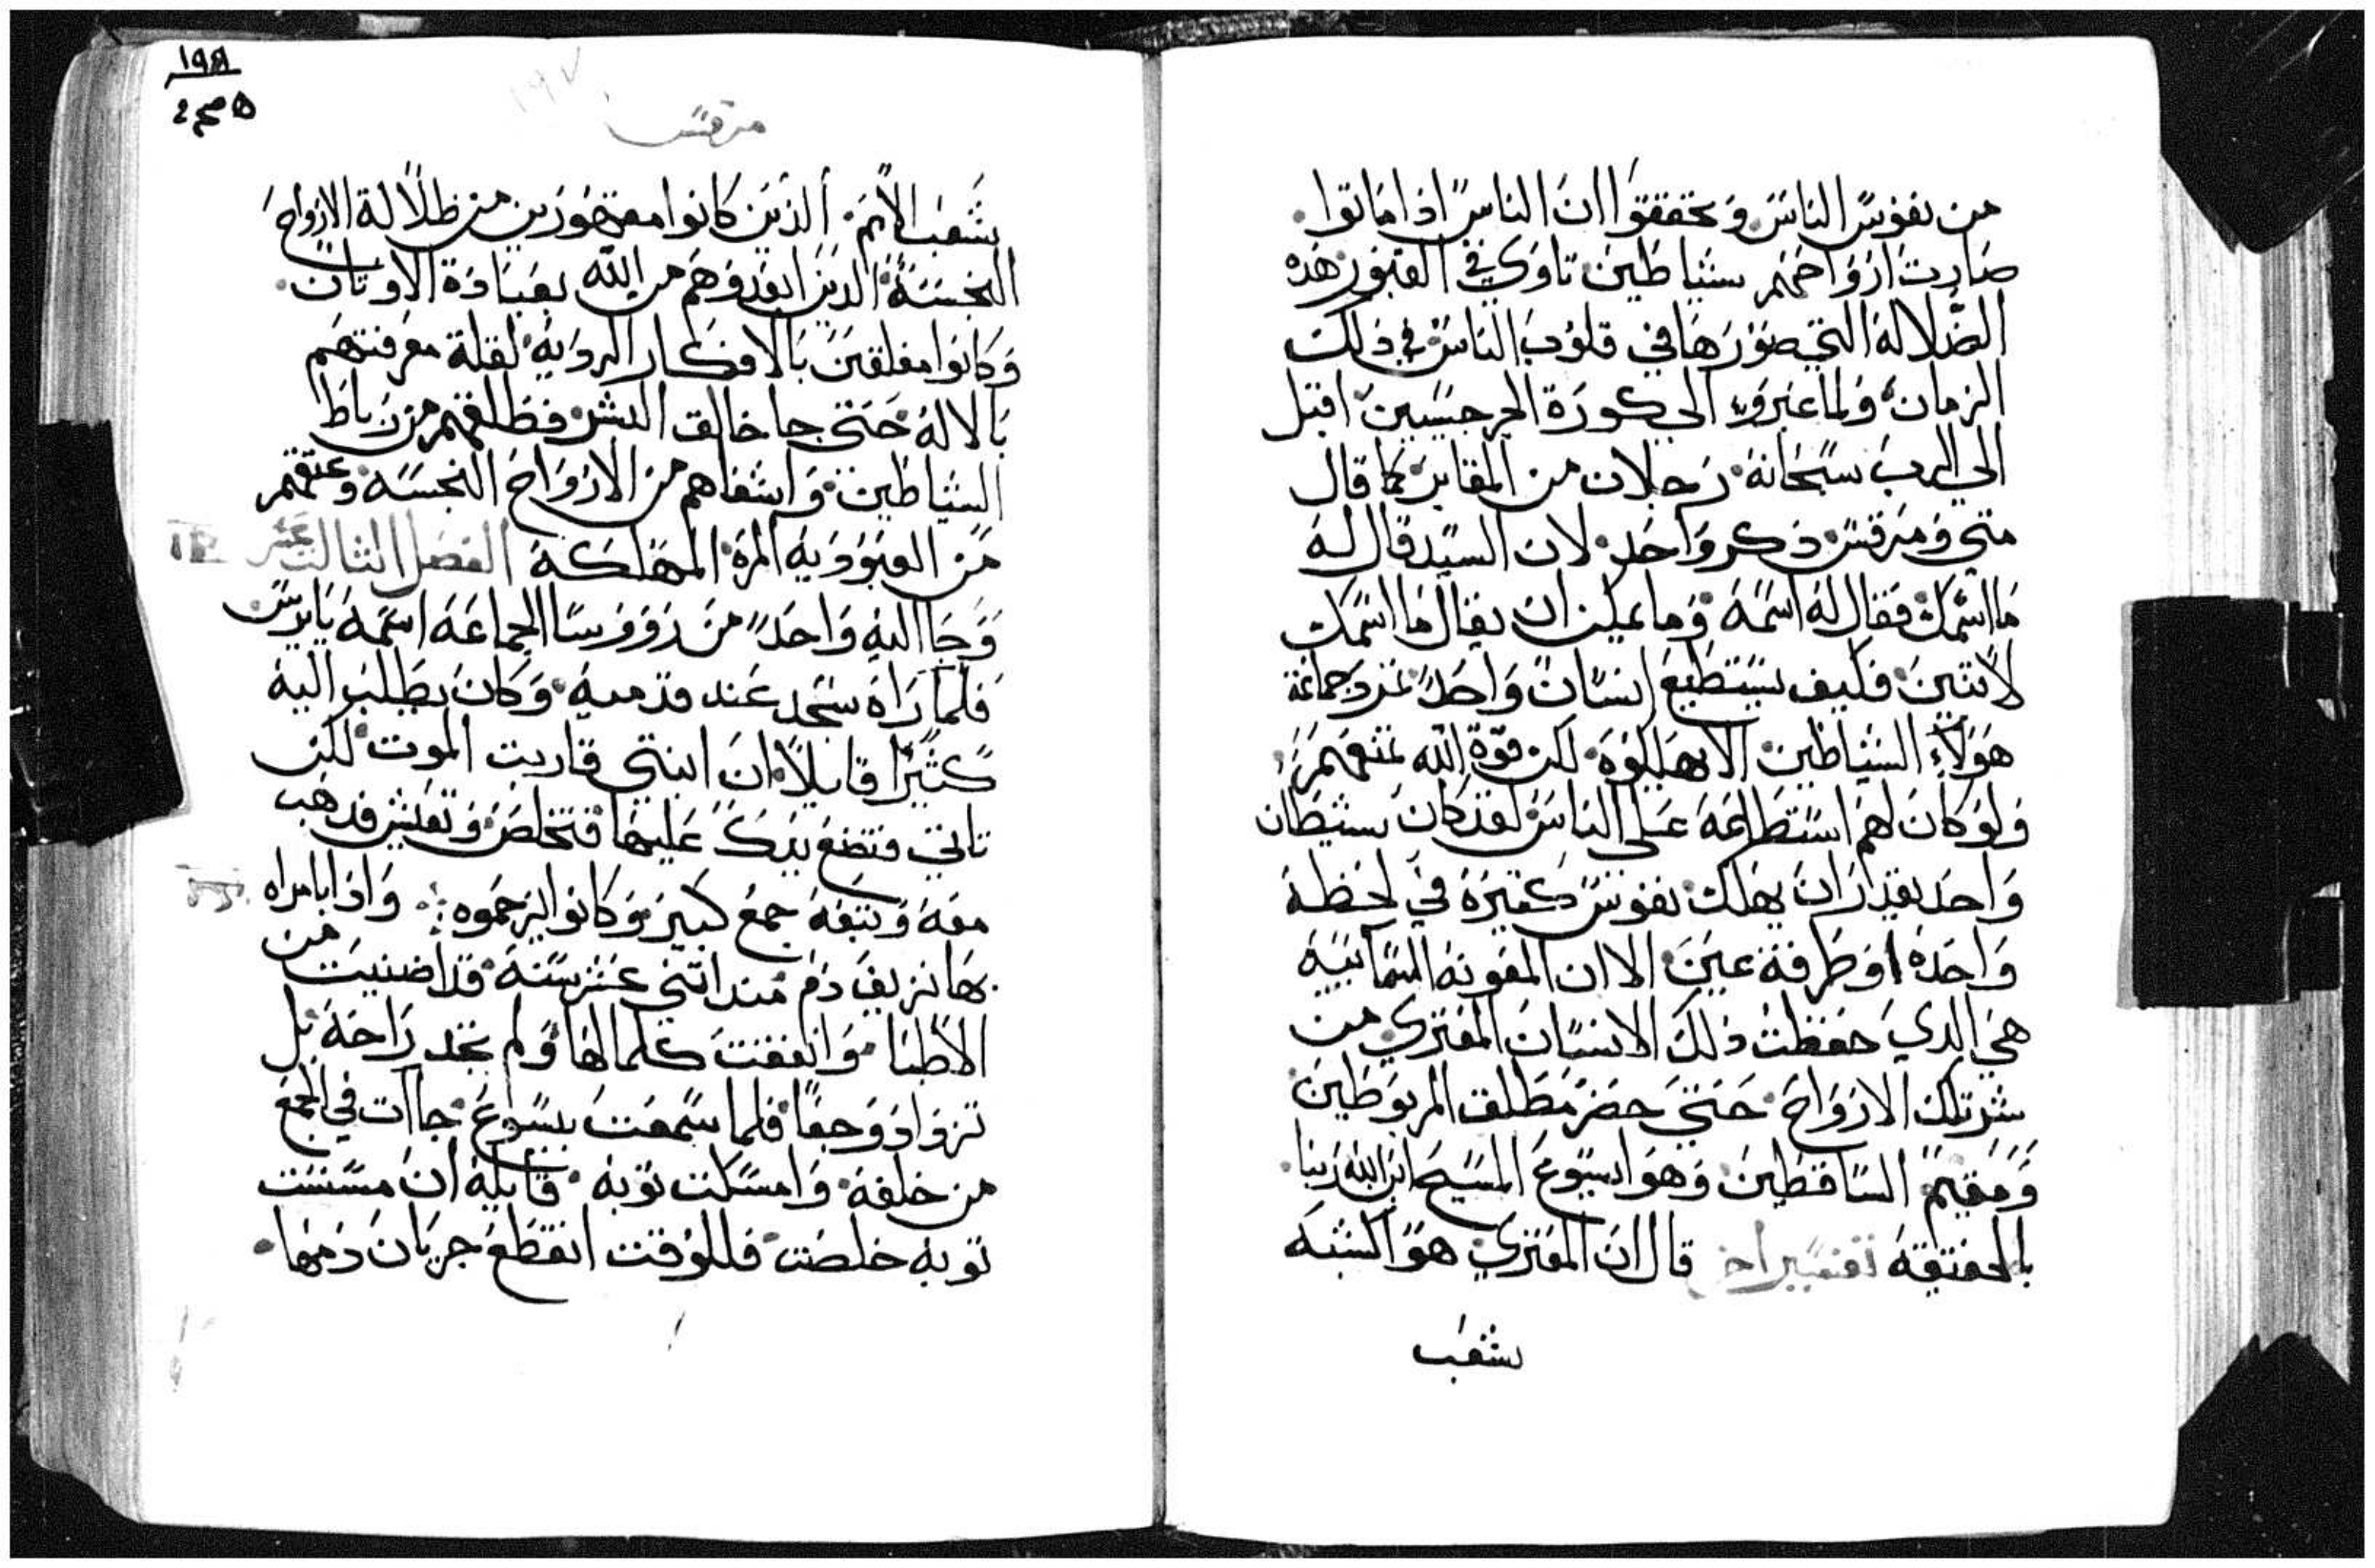 من نفوس الناس وتحققوا ان الناس اذا ماتوا
صارت ارواحهم شياطين تاوي في القبور هذه
الضلالة التي صورها في قلوب الناس في ذلك
الزمان ولما عبروا الي كورة الجرجسيين اقبل
الي الرب سبحانة رجلان من المقابر كما قال
متي ومرقس ذكر واحد لان السيد قال له
ما اسمك فقال له اسمه وما يمكن ان يقال ما اسمك
لاتنين فكيف يستطيع انسان واحد جماعة
هولاء الشياطين الا يهلكوه لكن قوة الله تمنعهم
ولو كان لهم استطاعه علي الناس لقد كان شيطان
واحد بقدار ان يهلك نفوس كتيرة في لحظة
واحده او طرفة عين الا ان المعونه السمائية
هي الدي حفظت ذلك الانسان المعتري من
شر تلك الارواح حتي حضر مطلق المربوطين
ومقيم الساقطين وهو ايسوع المسيح ابن الله ربنا
بالحقيقة تفسير اخر قال ان المعتري هو اشبه
بشعب
١٩٨
مرقس
بشعب الامم الذين كانوا مقهورين من ظلالة الارواح
النجسة الدين ابعدوهم من الله بعبادة الاوتان
وكانوا مغلقين بالافكار الرديه لقلة معرفتهم
بالاله حتي جا خالق البشر فطلقهم من رباط
الشياطين واشفاهم من الارواح النجسه وعتقهم
من العبودية المرة المهلكة الفصل التالت عشر
وجا اليه واحد من رووسا الجماعه اسمه يايرس
فلما راه سجد عند قدميه وكان يطلب اليه
كثيرًا قايلا ان ابنتي قاربت الموت لكن
تاتي فتضع يدك عليها فتخلص وتعيش فدهب
معه وتبعه جمع كبير وكانوا يزحموه وادا بامراه
بها نزيف دم مند اتني عشر سنة قد اضنيت من
الاطبا وانفقت كلما لها ولم تجد راحة بل
تزداد وجعا فلما سمعت بيسوع جاات في الجمع
من خلفه وامسكت توبه قايلة ان مسست
توبه خلصت فللوقت انقطع جريان دمها